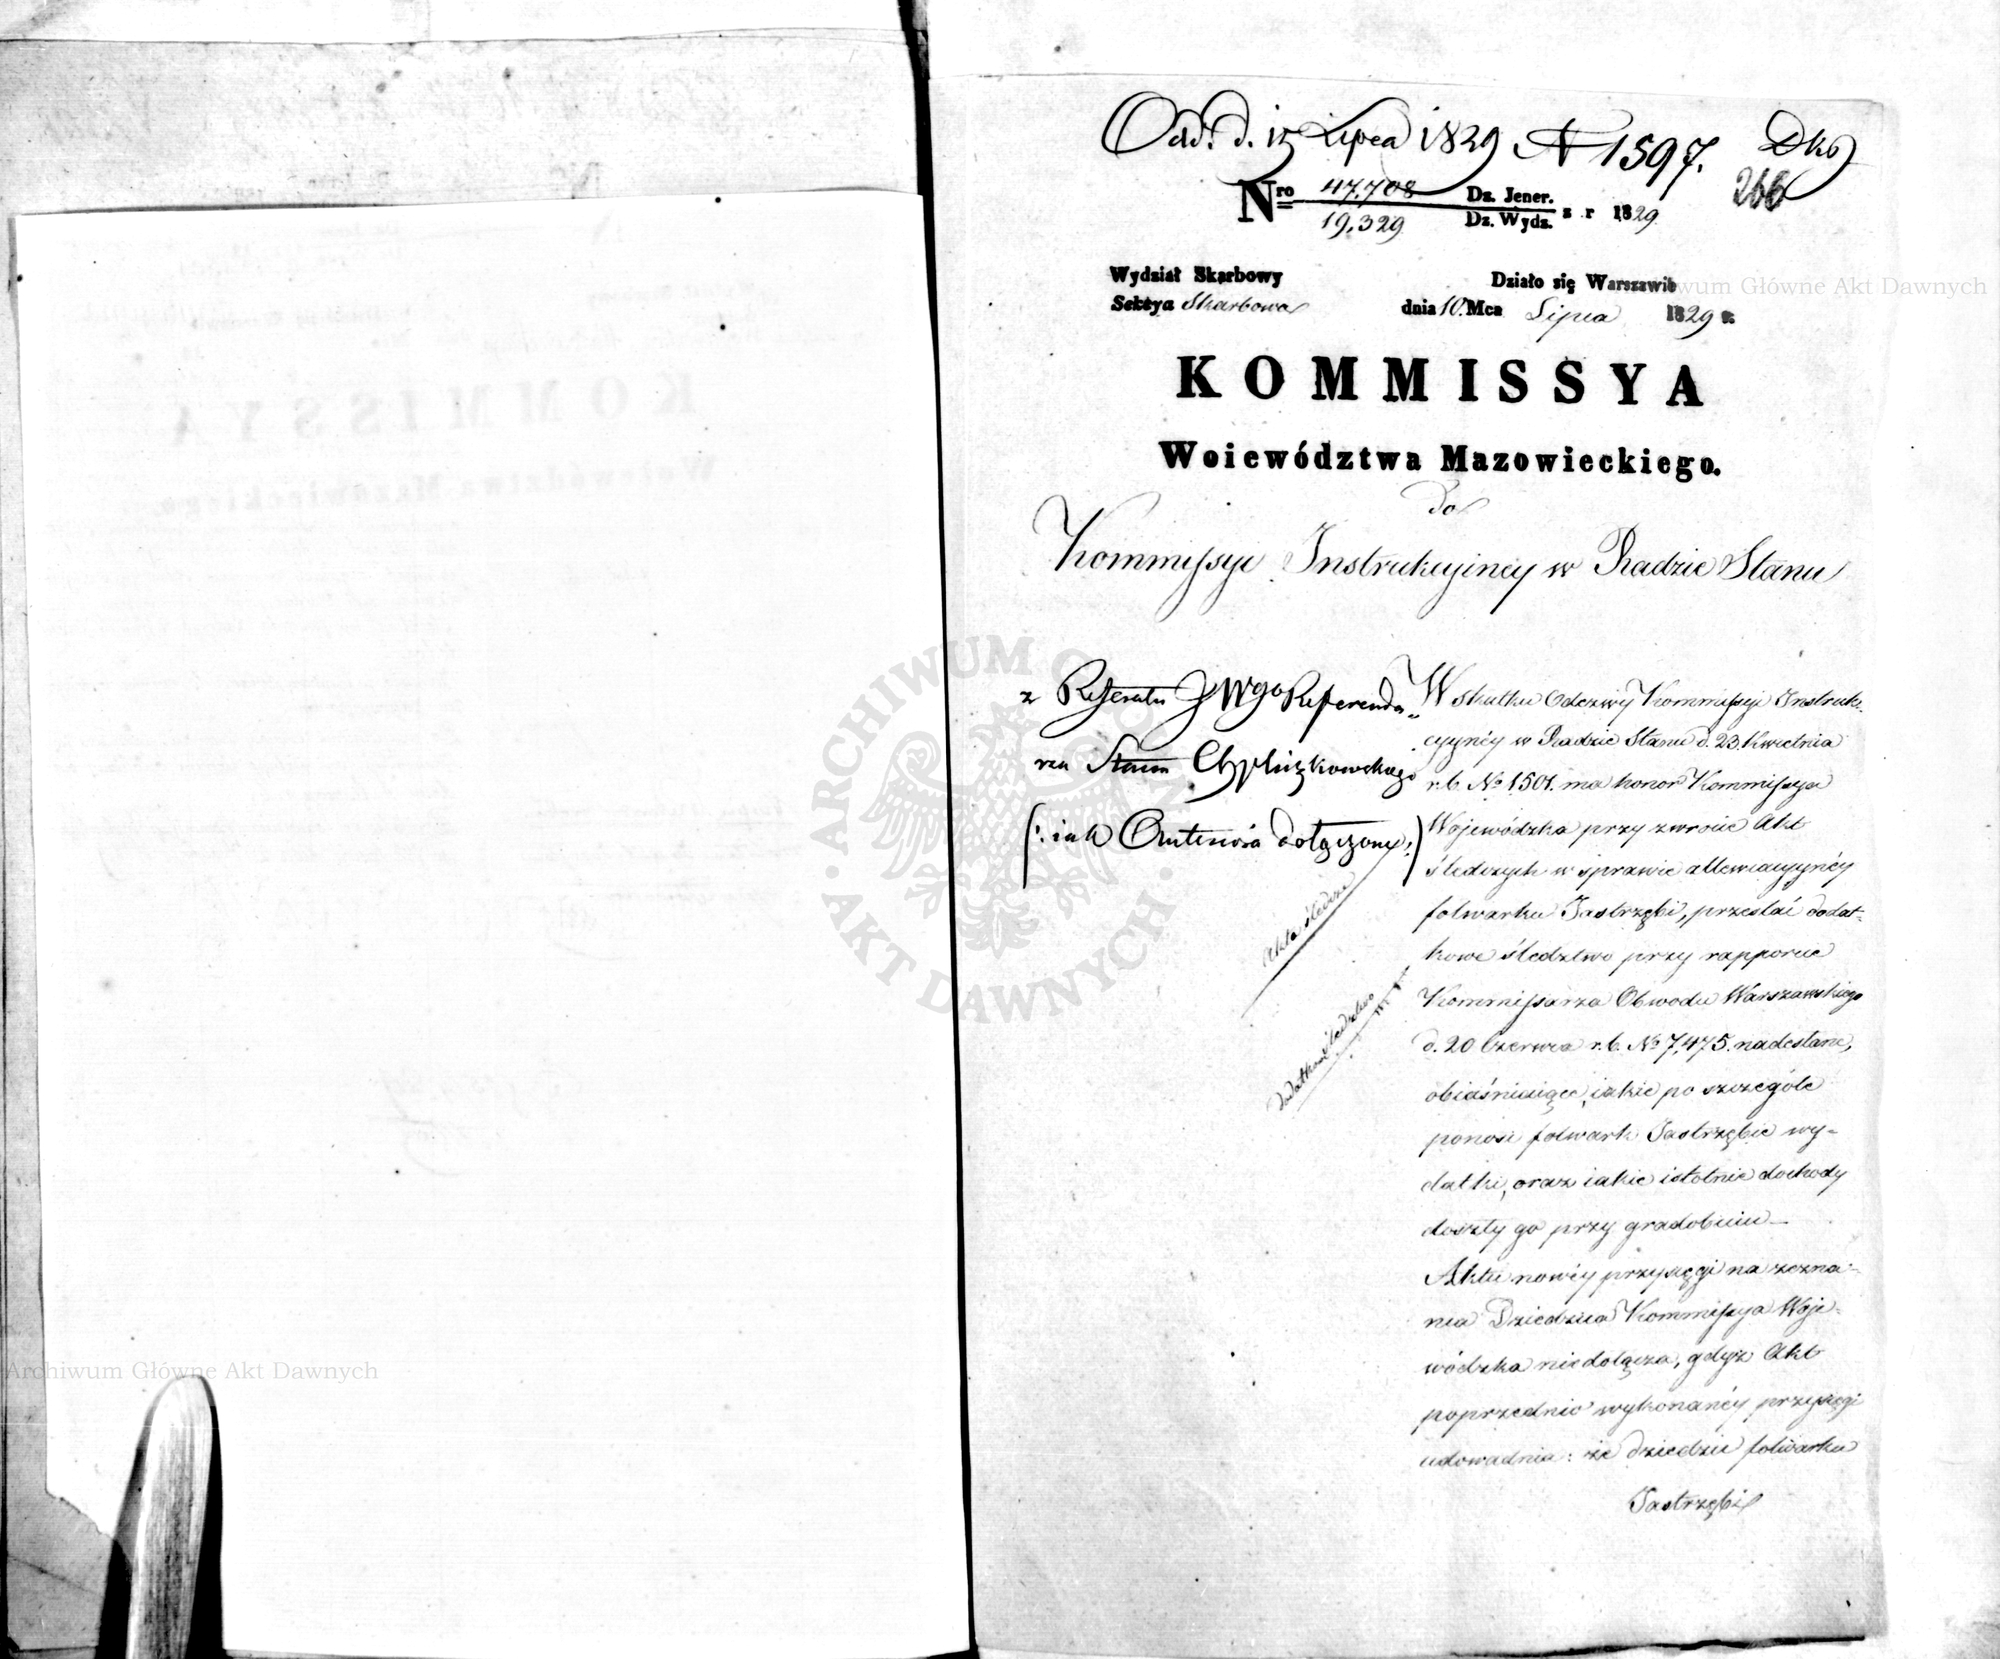 Odd. d. 15 Lipca 1829 N 1597. Dkb
266
Nro 47.708 Dz. Jener.
19,329 Dz. Wydz. z r 1829
Wydział Skarbowy
Sekcya Skarbowa
Działo się w Warszawie
dnia 10. Mca Lipca 1829 r.
KOMMISSYA
Woiewództwa Mazowieckiego.
do
Kommissyi Instrukcyinéy w Radzie Stanu
z Referatu JWgo Referenda-
rza Stanu
(: iak Anteriora dołączone :)
Akta śledcze
dodatkowe śledztwo
W skutku Odezwy Kommissyi Instruk-
cyynéy w Radzie Stanu d. 23. Kwietnia
r.b. No 1501. ma honor Kommissya
Wojewódzka przy zwrocie Akt
śledczych w sprawie allewiacyynéy
folwarku Jastrzębi, przesłać dodat-
kowe śledztwo przy rapporcie
Kommissarza Obwodu Warszawskiego
d. 20 Czerwca r.b. No 7,475. nadesłane,
obiaśniaiące, iakie po szczególe
ponosi folwark Jastrzębie wy-
datki, oraz iakie istotnie dochody
doszły go przy gradobiciu —
Aktu nowéy przysięgi na zezna-
nia Dziedzica Kommissya Woje-
wódzka niedołącza, gdyż Akt
poprzednio wykonanéy przysięgi
udowadnia: że dziedzic folwarku
Jastrzębi
ARCHIWUM GŁÓWNE AKT DAWNYCH
Archiwum Główne Akt Dawnych
Archiwum Główne Akt Dawnych